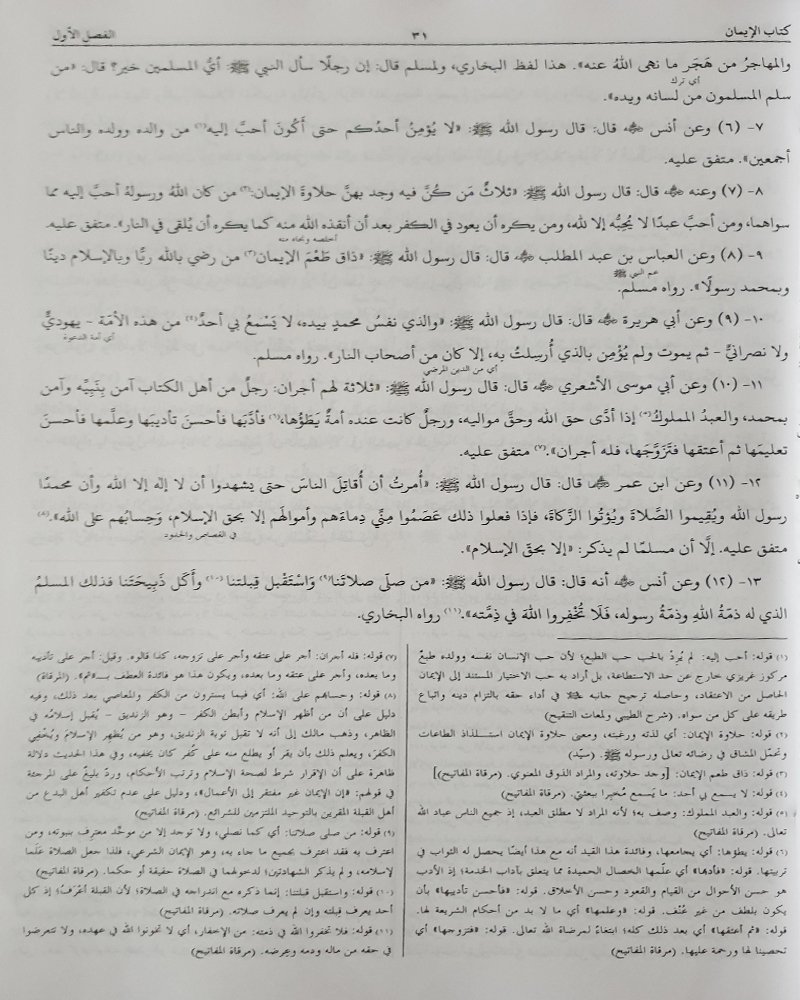 كتاب الإيمان ٣١ الفصل الأول
والمهاجرُ من هَجَر ما نهى اللهُ عنه». هذا لفظ البخاري، ولمسلم قال: إن رجلًا سأل النبي ﷺ: أيُّ المسلمين خير؟ قال: «من
أي ترك
سلم المسلمون من لسانه ويده».
٧- (٦) وعن أنس ﷺ قال: قال رسول الله ﷺ: «لا يُؤمِنُ أحدُكم حتى أَكُونَ أحبَّ إليه(١) من والده وولده والناس
أجمعين». متفق عليه.
٨- (٧) وعنه ﷺ قال: قال رسول الله ﷺ: «ثلاثٌ مَن كُنَّ فيه وجد بهنَّ حلاوةَ الإيمان:(٢) من كان اللهُ ورسولهُ أحبَّ إليه مما
سواهما، ومن أحبَّ عبدًا لا يُحِبُّه إلا لله، ومن يكره أن يعود في الكفر بعد أن أنقذه الله منه كما يكره أن يُلقى في النار». متفق عليه.
أخلصه ونجاه منه
٩- (٨) وعن العباس بن عبد المطلب ﷺ قال: قال رسول الله ﷺ: «ذاق طَعْمَ الإيمان(٣) من رضي بالله ربًّا وبالإسلام دينًا
عم النبي ﷺ
وبمحمد رسولًا». رواه مسلم.
١٠- (٩) وعن أبي هريرة ﷺ قال: قال رسول الله ﷺ: «والذي نفسُ محمدٍ بيده، لا يَسْمَعُ بي أحدٌ(٤) من هذه الأمّة - يهوديٌّ
أي أمة الدعوة
ولا نصرانيٌّ - ثم يموت ولم يُؤْمِن بالذي أُرسِلتُ به، إلا كان من أصحاب النار». رواه مسلم.
أي من الدين المرضي
١١- (١٠) وعن أبي موسى الأشعري ﷺ قال: قال رسول الله ﷺ: «ثلاثة لهم أجران: رجلٌ من أهل الكتاب آمن بِنَبِيِّه وآمن
بمحمد، والعبدُ المملوكُ(٥) إذا أدَّى حق الله وحقَّ مواليه، ورجلٌ كانت عنده أمةٌ يَطَؤُها،(٦) فأدَّبَها فأحسنَ تأديبَها وعلَّمها فأحسنَ
تعليمَها ثم أعتقها فتَزَوَّجَها، فله أجران».(٧) متفق عليه.
١٢- (١١) وعن ابن عمر ﷺ قال: قال رسول الله ﷺ: «أُمرتُ أن أُقاتِلَ الناسَ حتى يشهدوا أن لا إله إلا الله وأن محمدًا
رسول الله ويُقِيموا الصَّلاةَ ويُؤتُوا الزَّكاةَ، فإذا فعلوا ذلك عَصَمُوا مِنِّي دِماءَهم وأموالَهم إلا بحق الإسلام، وَحِسابُهم على الله».(٨)
في القصاص والحدود
متفق عليه. إلَّا أن مسلمًا لم يذكر: «إلا بحقّ الإسلام».
١٣- (١٢) وعن أنس ﷺ أنه قال: قال رسول الله ﷺ: «من صلّى صلاتَنا(٩) وَاسْتَقْبل قِبلتنا(١٠) وأكَل ذَبِيحَتَنا فذلك المسلمُ
الذي له ذمّةُ اللهِ وذمّةُ رسوله، فَلَا تُخْفِروا اللهَ في ذِمَّته».(١١) رواه البخاري.
(١) قوله: أحب إليه: لم يُرِدْ بالحب حب الطبع؛ لأن حب الإنسان نفسه وولده طبعٌ
مركوز غريزي خارج عن حد الاستطاعة، بل أراد به حب الاختيار المستند إلى الإيمان
الحاصل من الاعتقاد، وحاصله ترجيح جانبه ﷺ في أداء حقه بالتزام دينه واتباع
طريقه على كل من سواه. (شرح الطيبي ولمعات التنقيح)
(٢) قوله: حلاوة الإيمان: أي لذته ورغبته، ومعنى حلاوة الإيمان استلذاذ الطاعات
وتحمّل المشاق في رضائه تعالى ورسوله ﷺ. (سيّد)
(٣) قوله: ذاق طعم الإيمان: [وجد حلاوته، والمراد الذوق المعنوي. (مرقاة المفاتيح)]
(٤) قوله: لا يسمع بي أحد: ما يَسمع مُخبِرا ببعثتي. (مرقاة المفاتيح)
(٥) قوله: والعبد المملوك: وصف به؛ لأنه المراد لا مطلق العبد، إذ جميع الناس عباد الله
تعالى. (مرقاة المفاتيح)
(٦) قوله: يطؤها: أي يجامعها، وفائدة هذا القيد أنه مع هذا أيضًا يحصل له الثواب في
تربيتها. قوله: «فأدبها» أي علّمها الخصال الحميدة مما يتعلق بآداب الخدمة؛ إذ الأدب
هو حسن الأحوال من القيام والقعود وحسن الأخلاق. قوله: «فأحسن تأديبها» بأن
يكون بلطف من غير عُنْف. قوله: «وعلمها» أي ما لا بد من أحكام الشريعة لها.
قوله: «ثم أعتقها» أي بعد ذلك كله؛ ابتغاءً لمرضاة الله تعالى. قوله: «فتزوجها» أي
تحصينا لها ورحمة عليها. (مرقاة المفاتيح)
(٧) قوله: فله أجران: أجر على عتقه وأجر على تزوجه، كذا قالوه. وقيل: أجر على تأديبه
وما بعده، وأجر على عتقه وما بعده، ويكون هذا هو فائدة العطف بـ«ثم». (المرقاة)
(٨) قوله: وحسابهم على الله: أي فيما يسترون من الكفر والمعاصي بعد ذلك، وفيه
دليل على أن من أظهر الإسلام وأبطن الكفر - وهو الزنديق - يُقبل إسلامُه في
الظاهر، وذهب مالك إلى أنه لا تقبل توبة الزنديق، وهو من يُظهر الإسلامَ ويُخْفِي
الكفرَ، ويعلم ذلك بأن يقر أو يطلع منه على كُفر كان يخفيه، وفي هذا الحديث دلالة
ظاهرة على أن الإقرار شرط لصحة الإسلام وترتب الأحكام، وردّ بليغٌ على المرجئة
في قولهم: «إن الإيمان غير مفتقر إلى الأعمال»، ودليل على عدم تكفير أهل البدع من
أهل القبلة المقرين بالتوحيد الملتزمين للشرائع. (مرقاة المفاتيح)
(٩) قوله: من صلى صلاتنا: أي كما نصلي، ولا توجد إلا من موحِّد معترف بنبوته، ومن
اعترف به فقد اعترف بجميع ما جاء به، وهو الإيمان الشرعي، فلذا جعل الصلاة عَلَما
لإسلامه، و لم يذكر الشهادتين؛ لدخولهما في الصلاة حقيقة أو حكما. (مرقاة المفاتيح)
(١٠) قوله: واستقبل قبلتنا: إنما ذكره مع اندراجه في الصلاة؛ لأن القبلة أَعْرَفُ؛ إذ كل
أحد يعرف قبلته وإن لم يعرف صلاته. (مرقاة المفاتيح)
(١١) قوله: فلا تخفروا الله في ذمته: من الإخفار، أي لا تخونوا الله في عهده، ولا تتعرضوا
في حقه من ماله ودمه وعِرضه. (مرقاة المفاتيح)